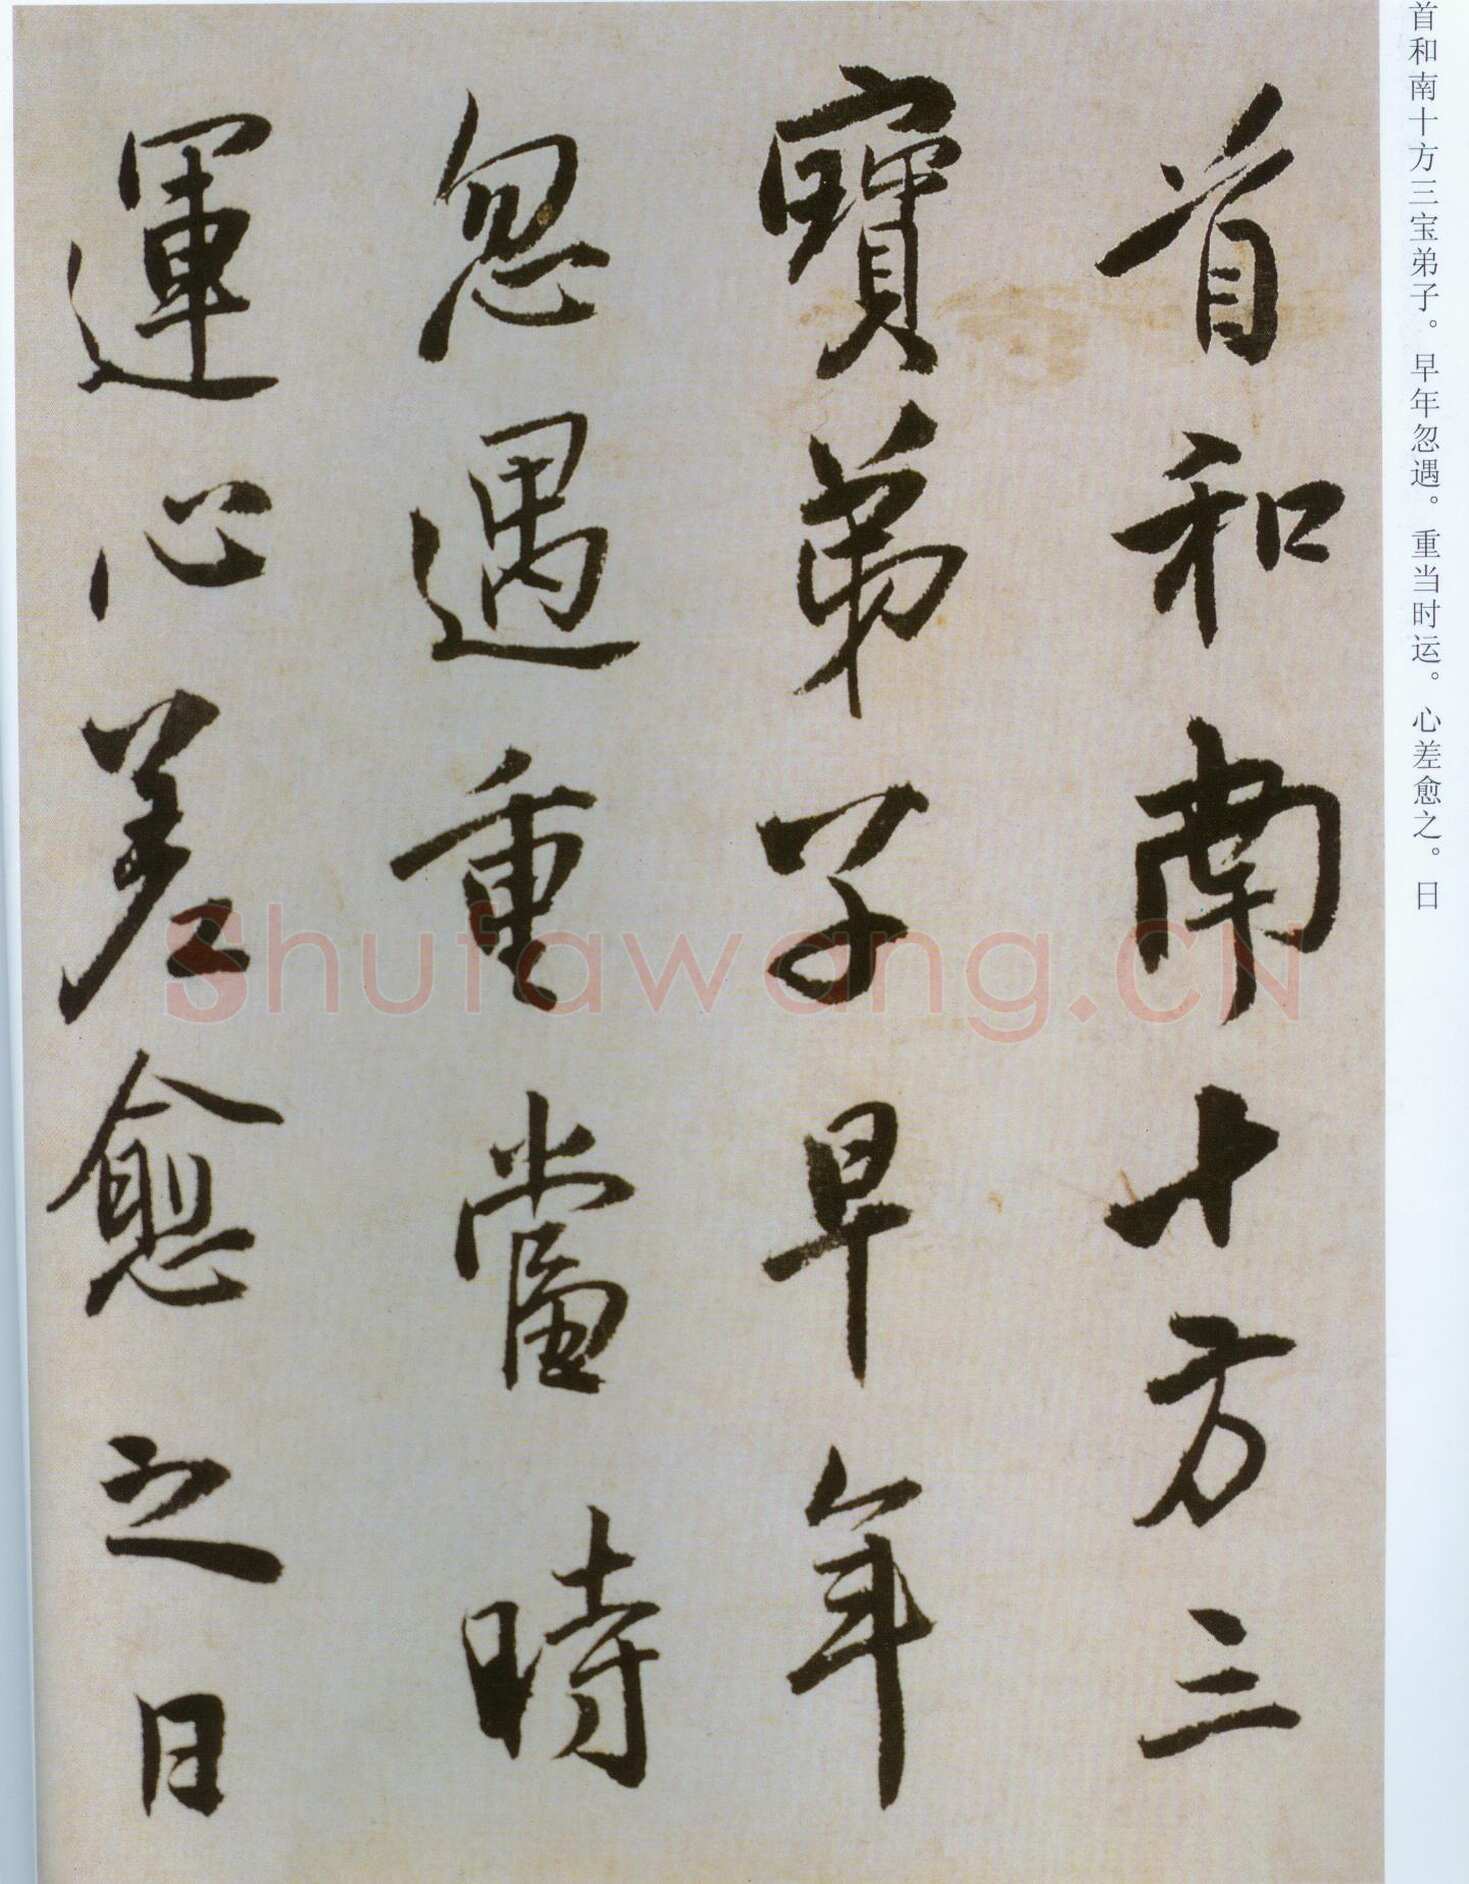 首和南十方三宝弟子。早年忽遇。重当时运。心差愈之。日
首和南十方三
寶弟子早年
忽遇重當時
運心差愈之日
Shufawang.CN